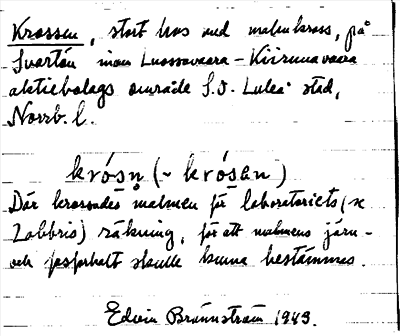 Krossen, stort hus med malmkross, på
Svartön inom Luossavaara-Kiirunavaara
aktiebolags område S.O. Luleå stad,
Norrb. l.
krósn̥ (~ krósən)
Där krossades malmen för laboratoriets (x
Labbris) räkning, för att malmens järn-
och fosforhalt skulle kunna bestämmas.
Edvin Brännström 1943.